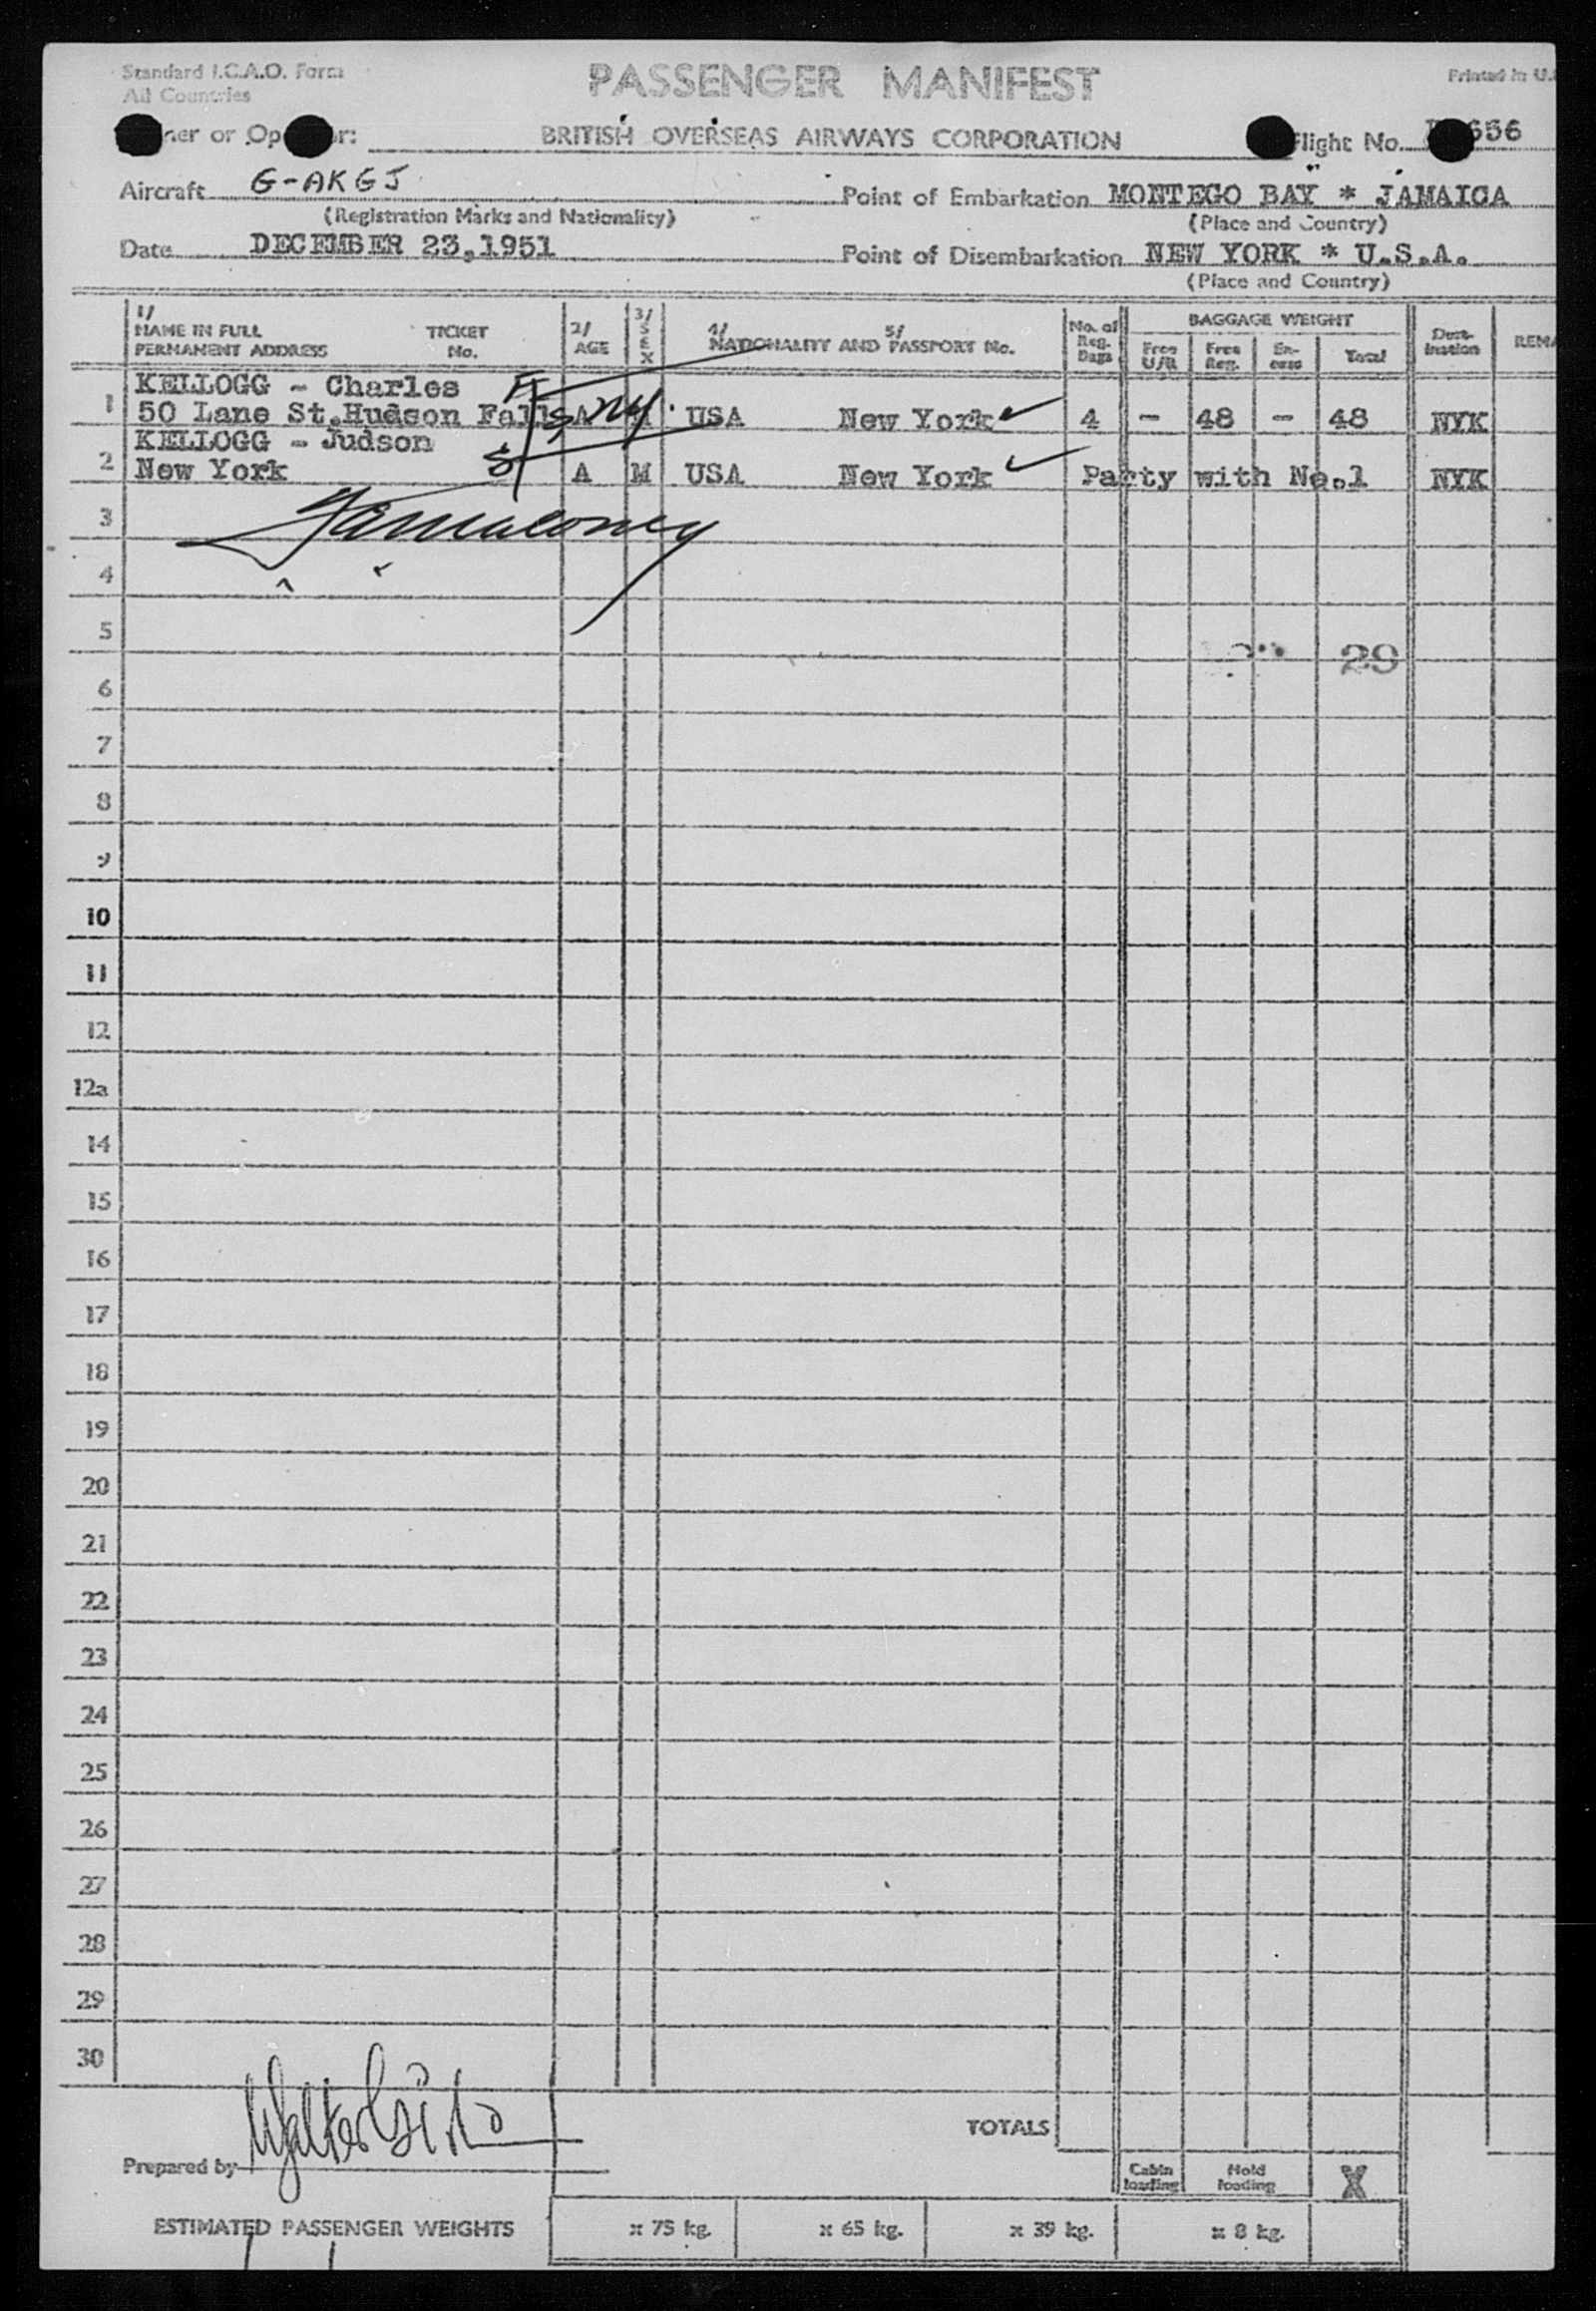 Standard I.C.A.O. Form
All Countries
PASSENGER MANIFEST
Printed in U.
ner or Op r:
BRITISH OVERSEAS AIRWAYS CORPORATION
light No. 656
Aircraft G-AKGJ
(Registration Marks and Nationality)
Point of Embarkation MONTEGO BAY * JAMAICA
(Place and Country)
Date DECEMBER 23,1951
Point of Disembarkation NEW YORK * U.S.A.
(Place and Country)
1/ NAME IN FULL PERMANENT ADDRESS
TICKET No.
2/ AGE
3/ SEX
4/ 5/
NATIONALITY AND PASSPORT No.
No. of Reg. Bags
BAGGAGE WEIGHT
Free U/R
Free Reg.
Ex-cess
Total
Dest-ination
REMA
KELLOGG - Charles F
1 50 Lane St.Hudson Falls A M USA New York ✓ 4 - 48 - 48 NYK
NY.
KELLOGG - Judson
2 New York S A M USA New York ✓ Party with No.1 NYK
3
4
5
29
6
7
8
9
10
11
12
12a
14
15
16
17
18
19
20
21
22
23
24
25
26
27
28
29
30
TOTALS
Prepared by Walter
Cabin loading
Hold loading
X
ESTIMATED PASSENGER WEIGHTS
x 75 kg.
x 65 kg.
x 39 kg.
x 8 kg.